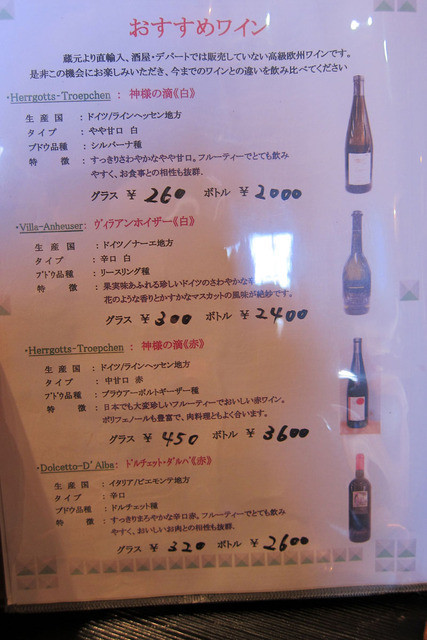 おすすめワイン
蔵元より直輸入、酒屋・デパートでは販売していない高級欧州ワインです。
是非この機会にお楽しみいただき、今までのワインとの違いを飲み比べてください
・Herrgotts-Troepchen : 神様の滴《白》
生産国 : ドイツ/ラインヘッセン地方
タイプ : やや甘口 白
ブドウ品種 : シルバーナ種
特徴 : すっきりさわやかなやや甘口。フルーティーでとても飲み
やすく、お食事との相性も抜群.
グラス ¥ 260 ボトル ¥ 2000
・Villa-Anheuser: ヴィラアンホイザー《白》
生産国 : ドイツ/ナーエ地方
タイプ : 辛口 白
ブドウ品種 : リースリング種
特徴 : 果実味あふれる珍しいドイツのさわやかな
花のような香りとかすかなマスカットの風味が絶妙です。
グラス ¥ 300 ボトル ¥ 2400
・Herrgotts-Troepchen : 神様の滴《赤》
生産国 : ドイツ/ラインヘッセン地方
タイプ : 中甘口 赤
ブドウ品種 : ブラウアーポルトギーザー種
特徴 : 日本でも大変珍しいフルーティーでおいしい赤ワイン。
ポリフェノールも豊富で、肉料理ともよく合います。
グラス ¥ 450 ボトル ¥ 3600
・Dolcetto-D'Alba: ドルチェット・ダルバ《赤》
生産国 : イタリア/ピエモンテ地方
タイプ : 辛口
ブドウ品種 : ドルチェット種
特徴 : すっきりまろやかな辛口赤。フルーティーでとても飲み
やすく、おいしいお肉との相性も抜群.
グラス ¥ 320 ボトル ¥ 2600